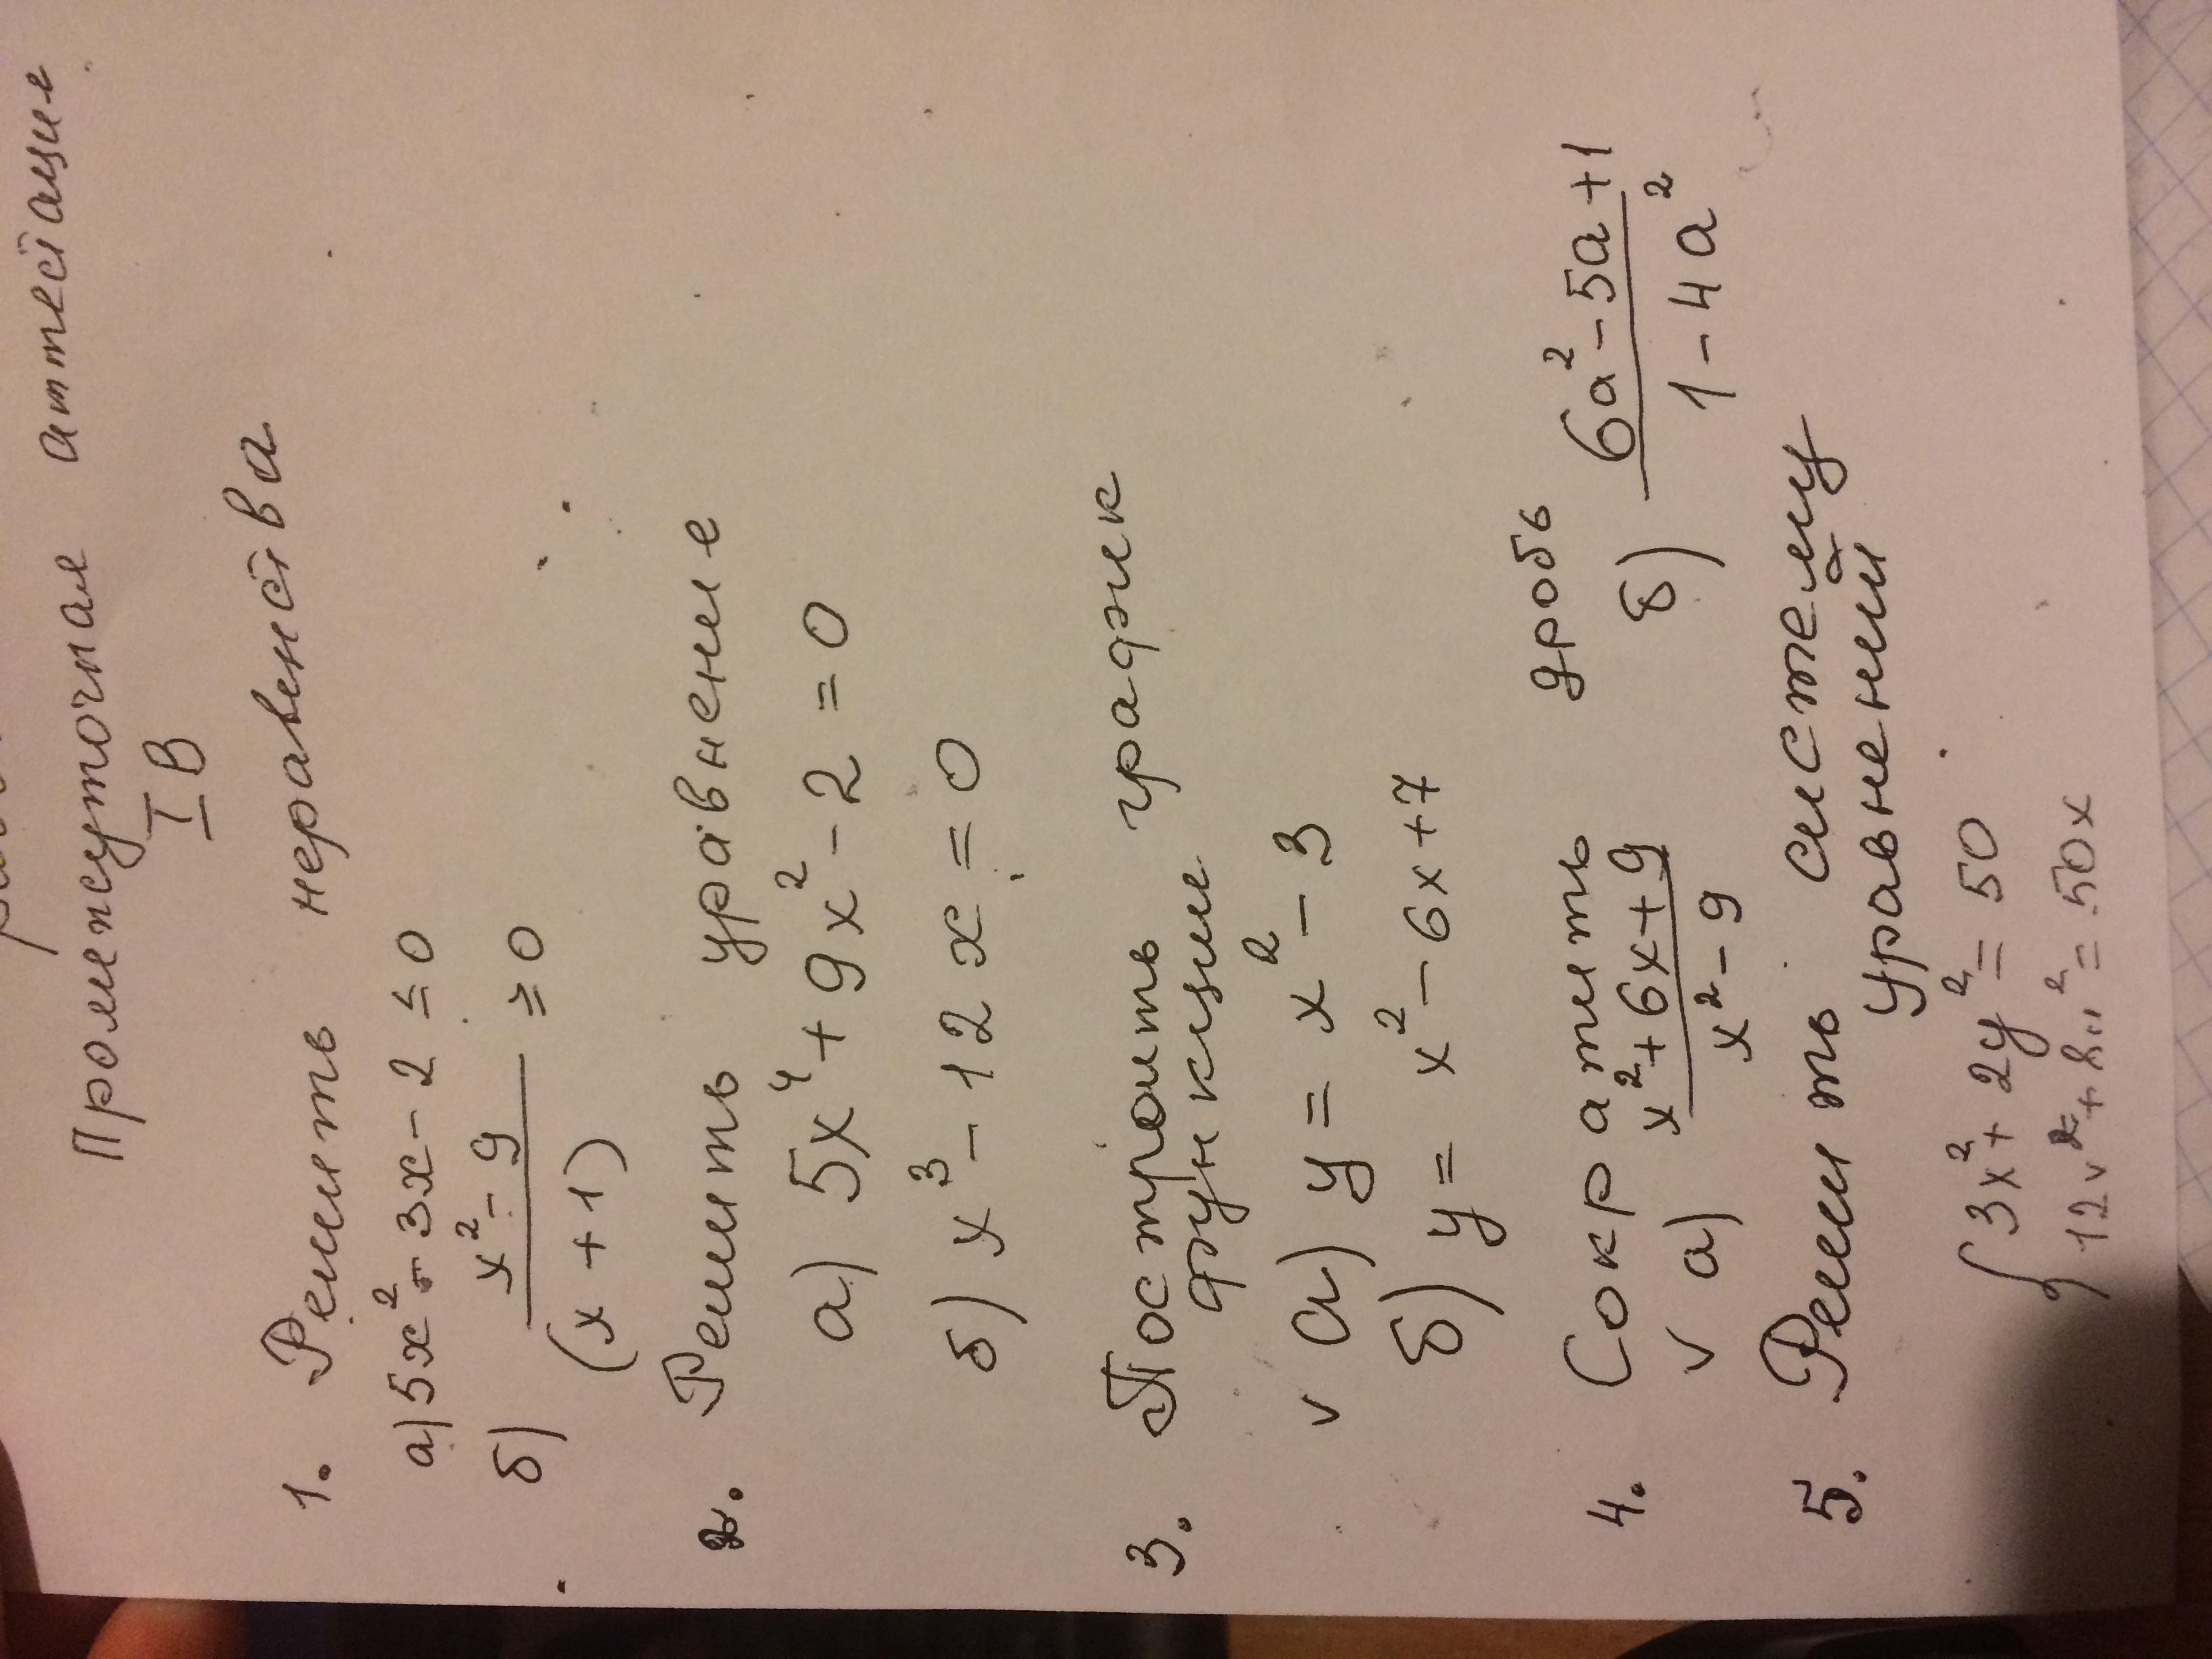 Промежуточная аттестация
I В
1. Решить неравенства
а) 5x² - 3x - 2 ≤ 0
б) x² - 9 / (x + 1) ≥ 0
2. Решить уравнение
а) 5x⁴ + 9x² - 2 = 0
б) x³ - 12x = 0
3. Построить график
функции
v а) y = x² - 3
б) y = x² - 6x + 7
4. Сократить дробь
v а) x² + 6x + 9 / x² - 9 б) 6a² - 5a + 1 / 1 - 4a²
5. Решить систему
уравнений
{ 3x² + 2y² = 50
= 50x